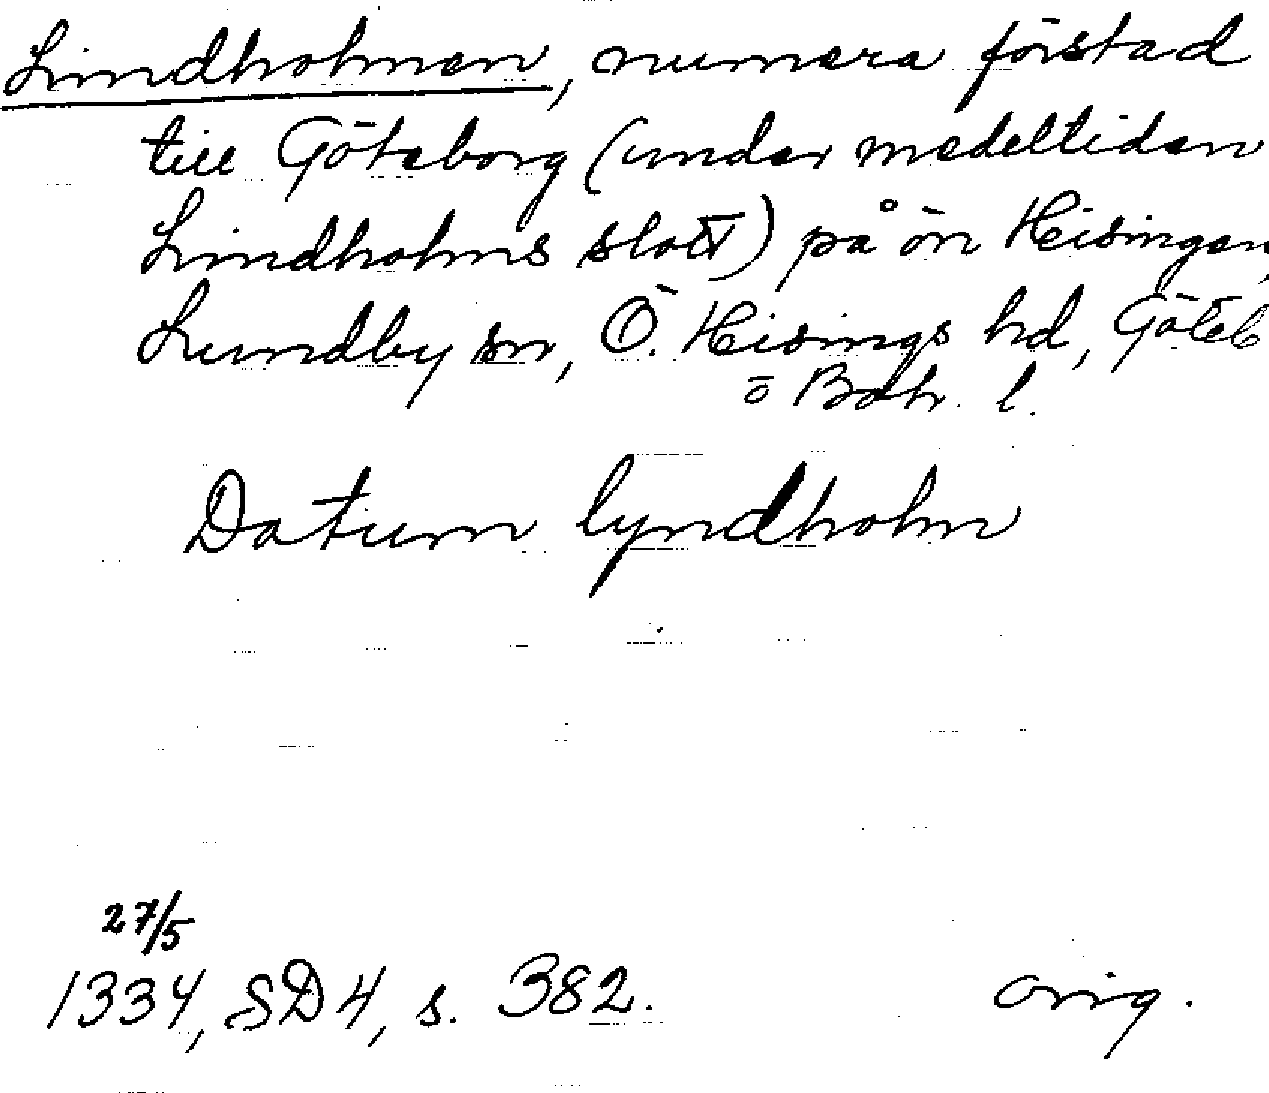 Lindholmen, numera förstad
till Göteborg (under medeltiden
Lindholms slott) på ön Hisingen,
Lundby sn, Ö. Hisings hd, Göteb
o Boh. l.
Datum lyndholm
27/5
1334, SD 4, s. 382. orig.